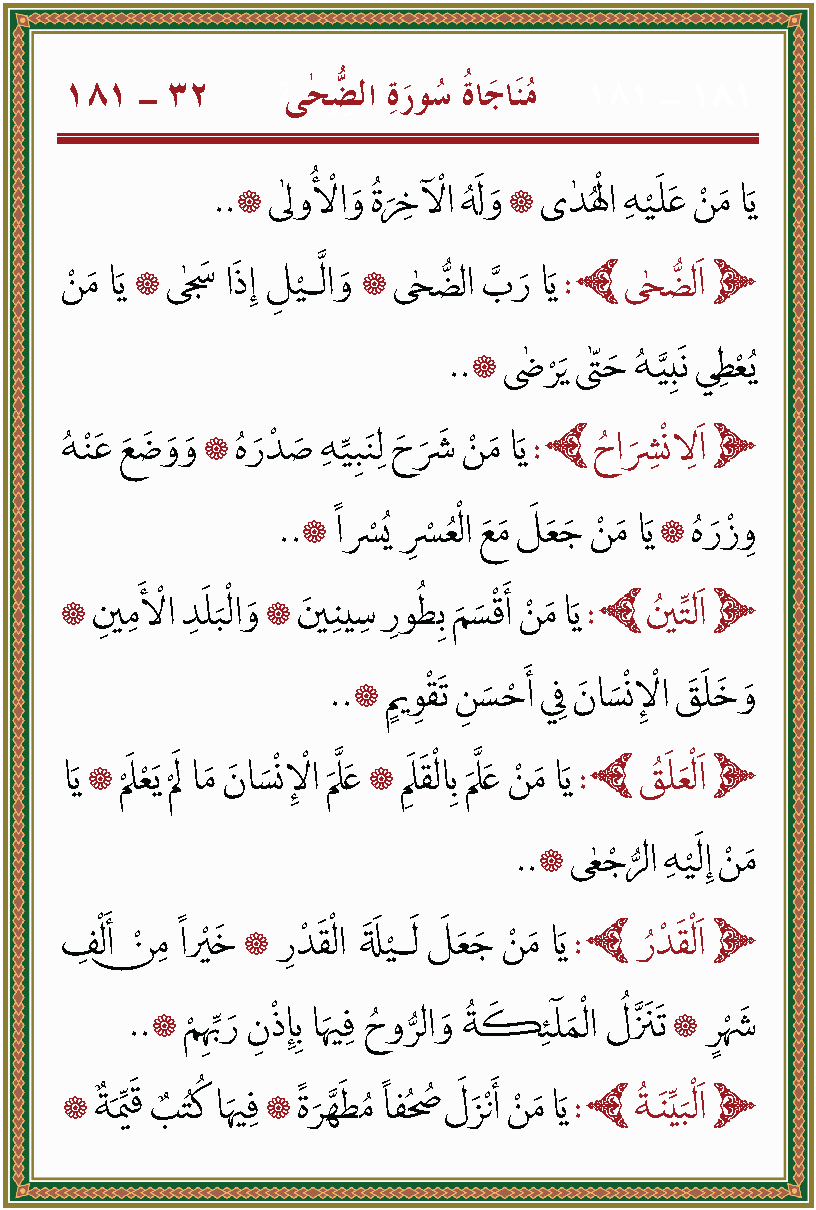 مُنَاجَاةُ سُورَةِ الضُّحٰى ٣٢ – ١٨١
يَا مَنْ عَلَيْهِ الْهُدٰى ۞ وَلَهُ الْآخِرَةُ وَالْأُولٰى ۞..
﴿ اَلضُّحٰى ﴾: يَا رَبَّ الضُّحٰى ۞ وَالَّيْلِ إِذَا سَجٰى ۞ يَا مَنْ
يُعْطِي نَبِيَّهُ حَتّٰى يَرْضٰى ۞..
﴿ اَلِانْشِرَاحُ ﴾: يَا مَنْ شَرَحَ لِنَبِيِّهِ صَدْرَهُ ۞ وَوَضَعَ عَنْهُ
وِزْرَهُ ۞ يَا مَنْ جَعَلَ مَعَ الْعُسْرِ يُسْراً ۞..
﴿ اَلتِّينُ ﴾: يَا مَنْ أَقْسَمَ بِطُورِ سِينِينَ ۞ وَالْبَلَدِ الْأَمِينِ ۞
وَخَلَقَ الْإِنْسَانَ فِي أَحْسَنِ تَقْوِيمٍ ۞..
﴿ اَلْعَلَقُ ﴾: يَا مَنْ عَلَّمَ بِالْقَلَمِ ۞ عَلَّمَ الْإِنْسَانَ مَا لَمْ يَعْلَمْ ۞ يَا
مَنْ إِلَيْهِ الرُّجْعٰى ۞..
﴿ اَلْقَدْرُ ﴾: يَا مَنْ جَعَلَ لَيْلَةَ الْقَدْرِ ۞ خَيْراً مِنْ أَلْفِ
شَهْرٍ ۞ تَنَزَّلُ الْمَلٓئِكَةُ وَالرُّوحُ فِيهَا بِإِذْنِ رَبِّهِمْ ۞..
﴿ اَلْبَيِّنَةُ ﴾: يَا مَنْ أَنْزَلَ صُحُفاً مُطَهَّرَةً ۞ فِيهَا كُتُبٌ قَيِّمَةٌ ۞